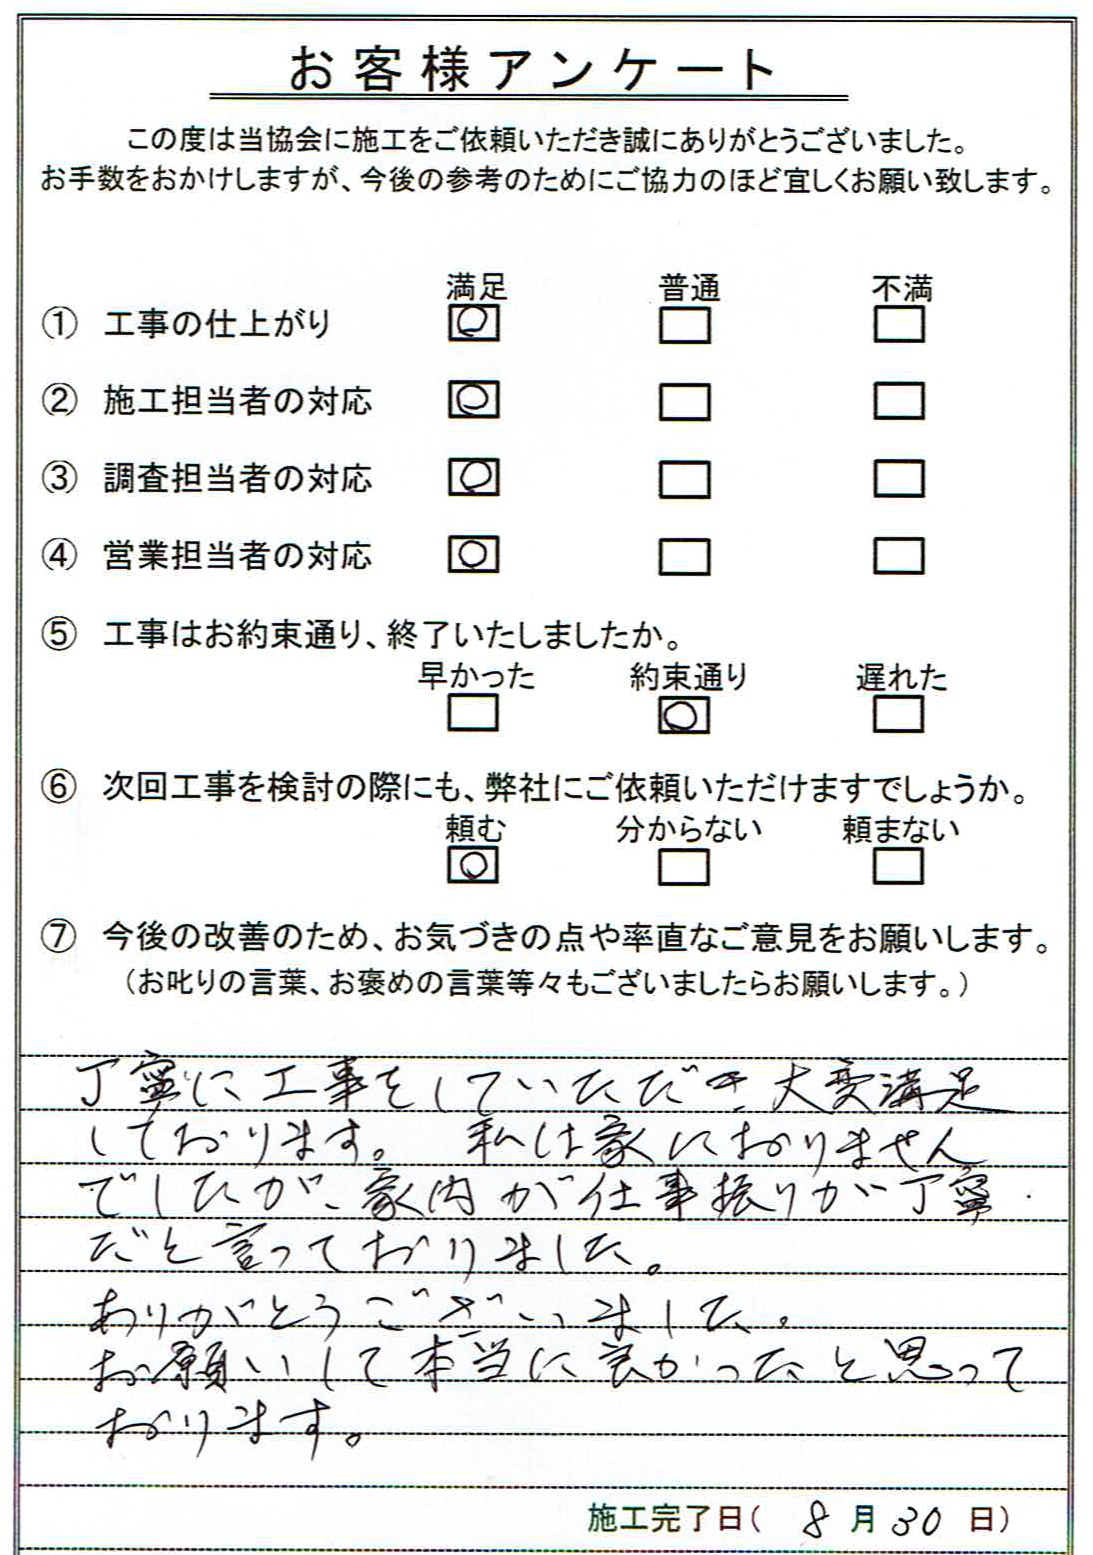 お客様アンケート
この度は当協会に施工をご依頼いただき誠にありがとうございました。
お手数をおかけしますが、今後の参考のためにご協力のほど宜しくお願い致します。
満足 普通 不満
① 工事の仕上がり
② 施工担当者の対応
③ 調査担当者の対応
④ 営業担当者の対応
⑤ 工事はお約束通り、終了いたしましたか。
早かった 約束通り 遅れた
⑥ 次回工事を検討の際にも、弊社にご依頼いただけますでしょうか。
頼む 分からない 頼まない
⑦ 今後の改善のため、お気づきの点や率直なご意見をお願いします。
（お叱りの言葉、お褒めの言葉等々もございましたらお願いします。）
丁寧に工事をしていただき大変満足
しております。 私は家におりません
でしたが、家内が仕事振りが丁寧
だと言っておりました。
ありがとうございました。
お願いして本当に良かったと思って
おります。
施工完了日( 8 月 30 日)